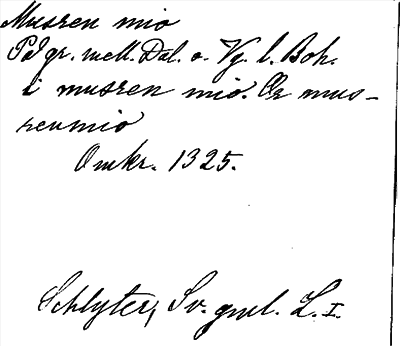 Musren mio
På gr. mell. Dal. o. Vg. l. Boh.
i musren mio. Or mus-
reumio
Omkr. 1325.
Schlyter, Sv. gml. L. I.